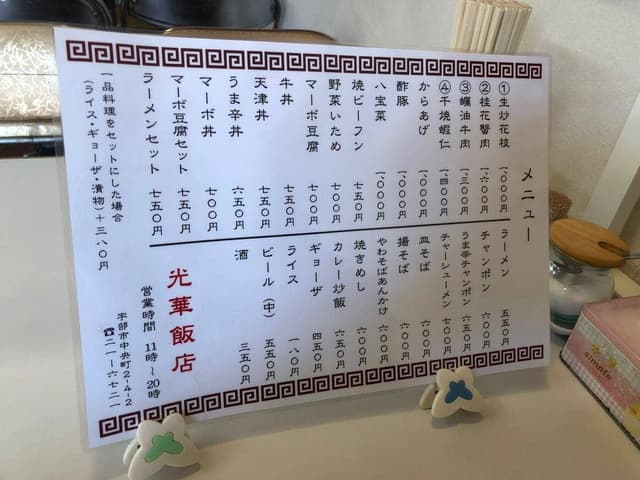 メニュー
①生炒花枝 一、〇〇〇円
②桂花蟹肉 一、六〇〇円
③蠣油牛肉 一、三〇〇円
④干焼蝦仁 一、四〇〇円
からあげ 一、〇〇〇円
酢豚 一、〇〇〇円
八宝菜 一、〇〇〇円
焼ビーフン 七五〇円
野菜いため 七〇〇円
マーボ豆腐 七〇〇円
牛丼 七五〇円
天津丼 七五〇円
うま辛丼 六五〇円
マーボ丼 七〇〇円
マーボ豆腐セット 七五〇円
ラーメンセット 七五〇円
一品料理をセットにした場合
(ライス・ギョーザ・漬物)+三八〇円
ラーメン 五五〇円
チャンポン 六〇〇円
うま辛チャンポン 六五〇円
チャーシューメン 七〇〇円
皿そば 六〇〇円
揚そば 六〇〇円
やわそばあんかけ 六〇〇円
焼きめし 六〇〇円
カレー炒飯 六五〇円
ギョーザ 四五〇円
ライス 一八〇円
ビール(中) 五五〇円
酒 三五〇円
光華飯店
営業時間 11時〜20時
宇部市中央町2-4-2
☎二一-六七二一
simple